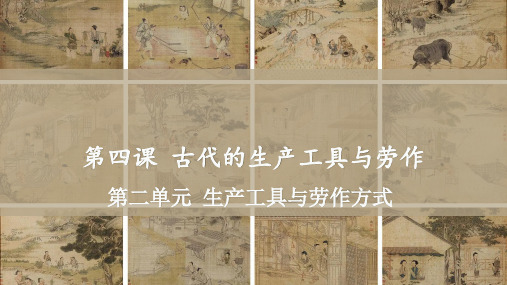 第四课 古代的生产工具与劳作
第二单元 生产工具与劳作方式